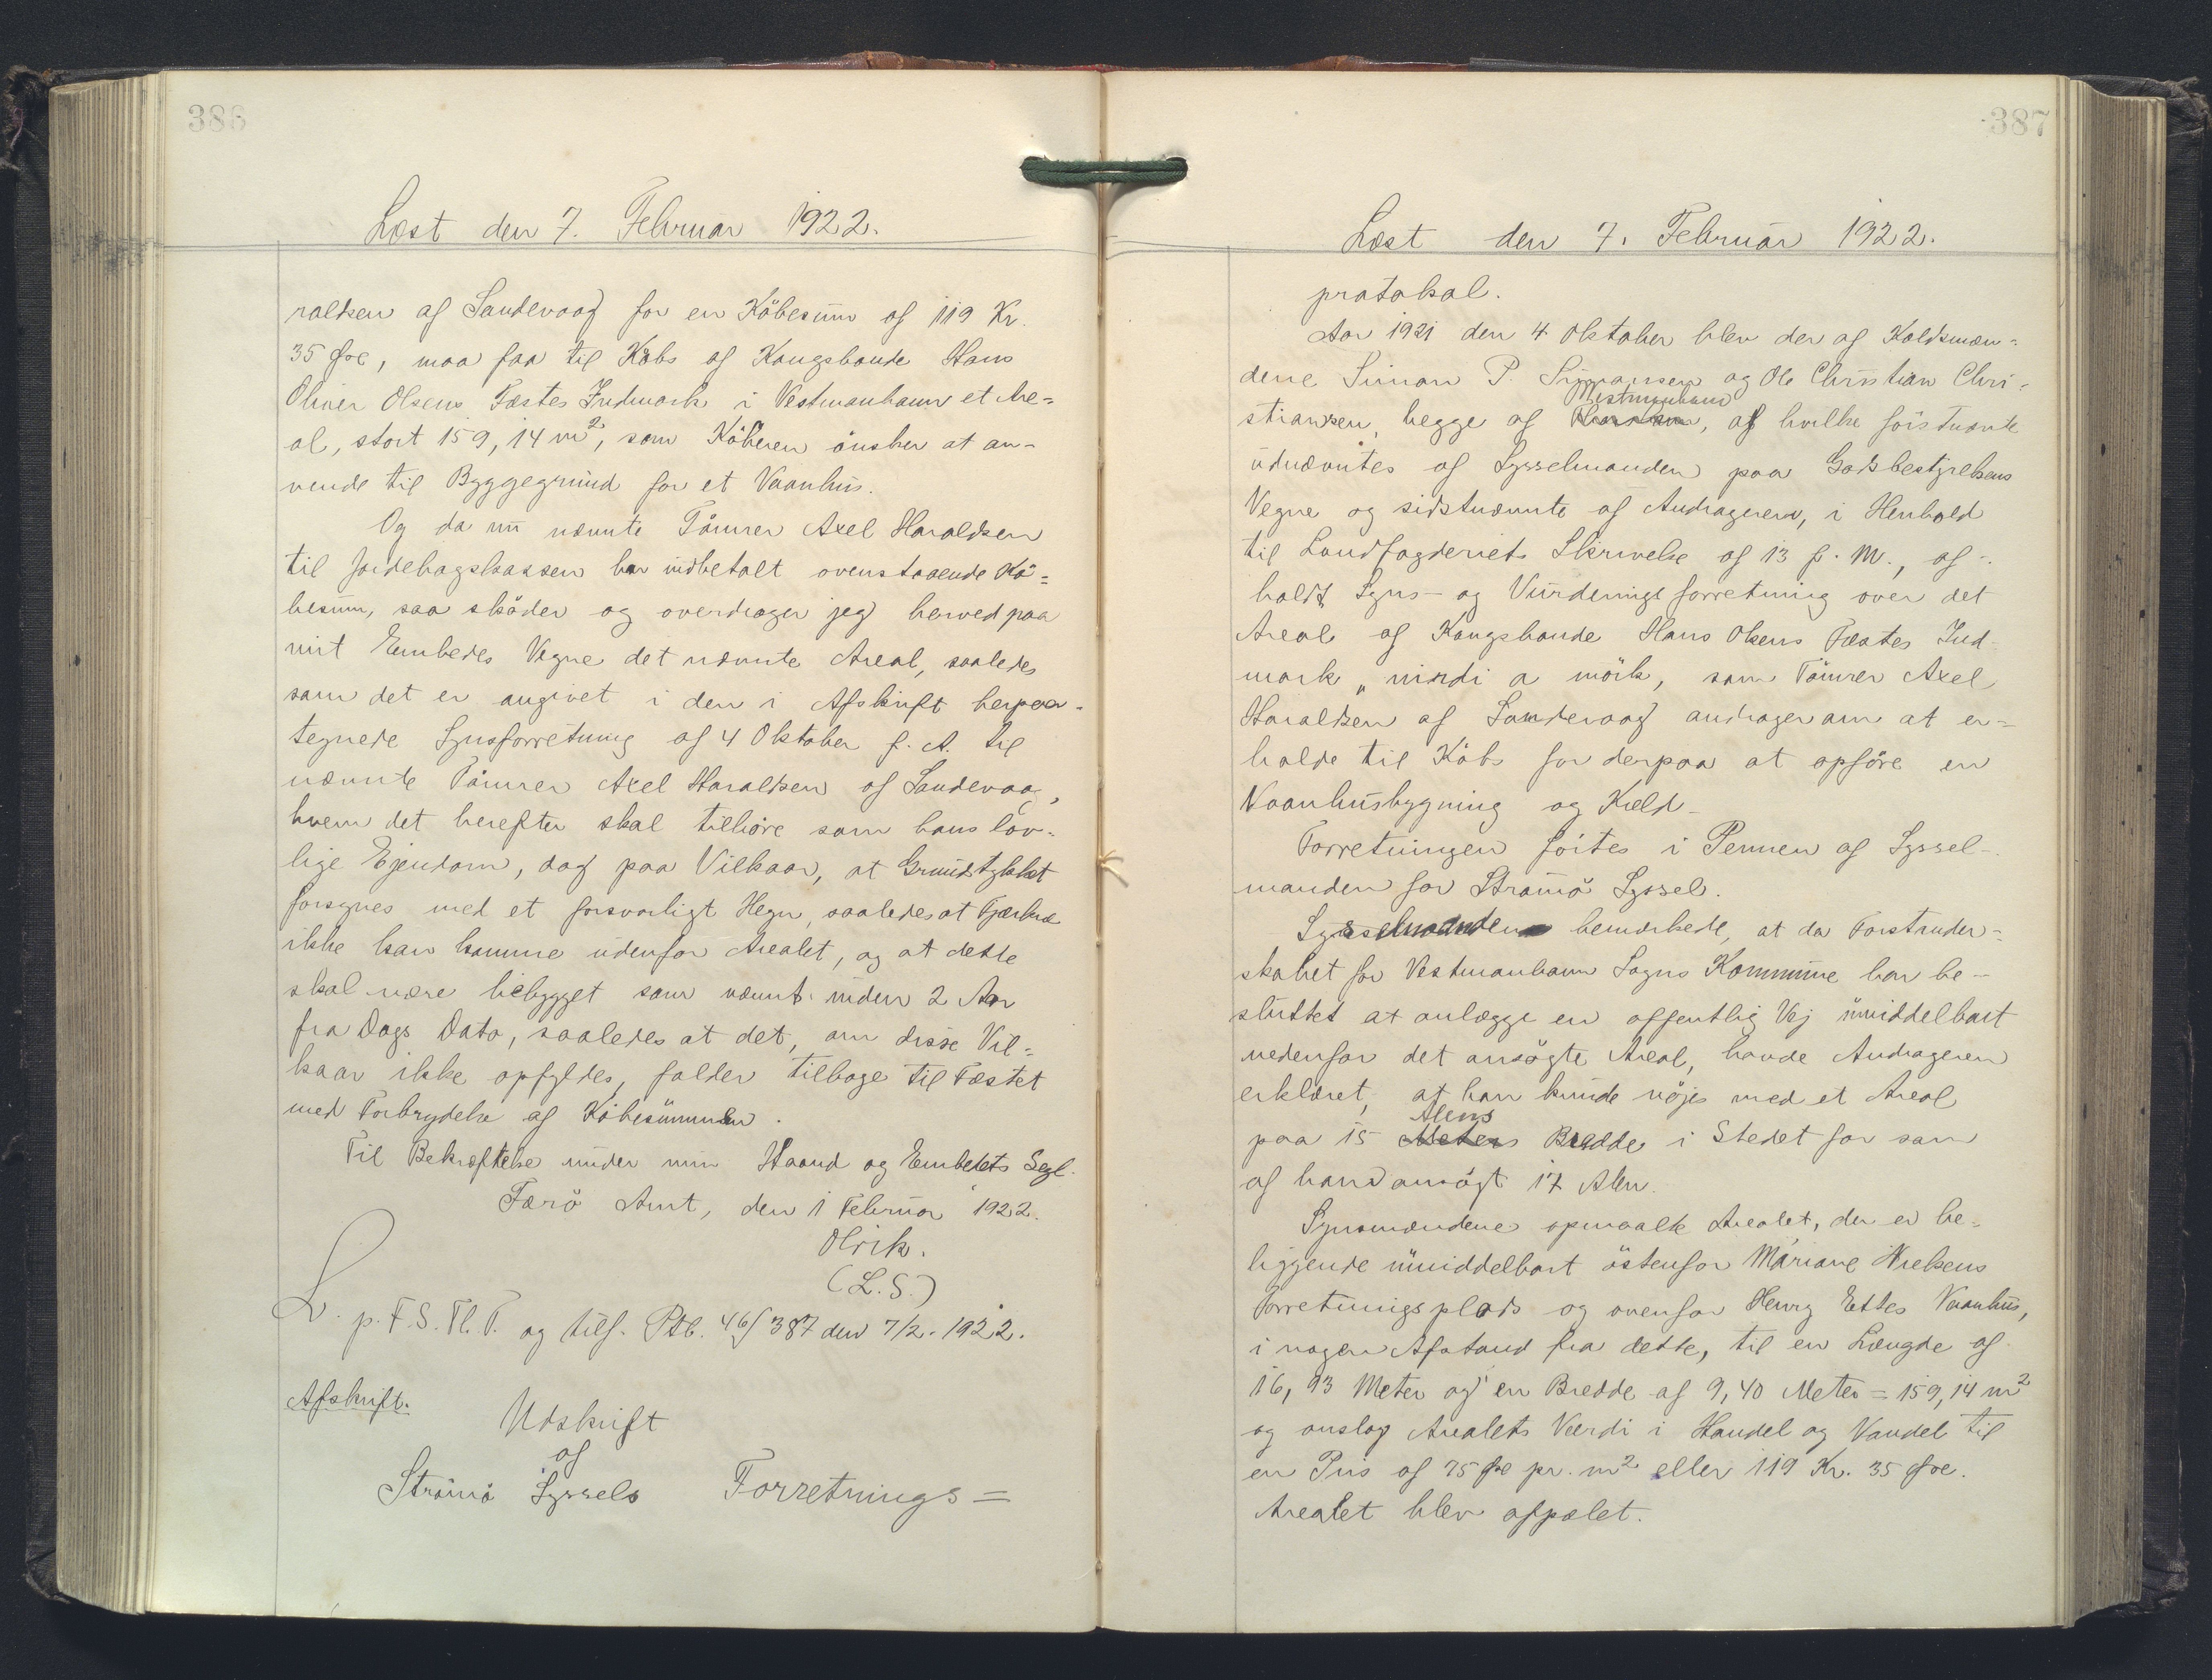 386
Læst den 7. Februar 1922.
raldsen af Sandevaag for en Købesum af 119 Kr.
35 Øre, maa faa til Købs af Kongsbonde Hans
Oliver Olsens Fæstes Indmark i Vestmanhavn et Are=
al, stort 159,14 m², som Køberen ønsker at an-
vende til Byggegrund for et Vaanhus.
Og da nu nævnte Tømrer Axel Haraldsen
til Jordebogskassen har indbetalt ovenstaaende Kø=
besum, saa skøder og overdrager jeg herved paa
mit Embedes Vegne det nævnte Areal, saaledes
som det er angivet i den i Afskrift herpaa-
tegnede Synsforretning af 4 Oktober f. A. til
nævnte Tømrer Axel Haraldsen af Sandevaag,
hvem det herefter skal tilhøre som hans lov-
lige Ejendom, dog paa Vilkaar, at Grundstykket
forsynes med et forsvarligt Hegn, saaledes at Fjerkræ
ikke kan komme udenfor Arealet, og at dette
skal være bebygget som nævnt inden 2 Aar
fra Dags Dato, saaledes at det, om disse Vil=
kaar ikke opfyldes, falder tilbage til Fæstet
med Forbrydelse af Købesummen.
Til Bekræftelse under min Haand og Embedets Segl.
Færø Amt, den 1 Februar 1922.
Olrik.
(L.S.)
L. p. F. S. Tl. P. og tilf. Ptb. 46/387 den 7/2. 1922.
Afskrift.
Udskrift
af
Strømø Syssels Forretnings=
387
Læst den 7. Februar 1922.
protokol.
Aar 1921 den 4 Oktober blev der af Koldsmæn=
dene Simon P. og Ole Christian Chri-
Vestmanhavn
stiansen, begge af , af hvilke førstnævnte
udnævntes af Sysselmanden paa Godsbestyrelsens
Vegne og sidstnævnte af Andrageren, i Henhold
til Landfogderiets Skrivelse af 13 f. M., af-
holdt Syns- og Vurderingsforretning over det
Areal af Kongsbonde Hans Olsens Fæstes Ind-
mark „nirdi a mörk, som Tømrer Axel
Haraldsen af Sandevaag andrager om at er=
holde til Købs for derpaa at opføre en
Vaanhusbygning og Kæld-
Forretningen førtes i Pennen af Syssel-
manden for Strømø Syssel.
Sysselmanden bemærkede, at da Forstander-
skabet for Vestmanhavn Sogns Kommune har be-
sluttet at anlægge en offentlig Vej umiddelbart
nedenfor det ansøgte Areal, havde Andrageren
erklæret, at han kunde nøjes med et Areal
Alens
paa 15 Meters Bredde i Stedet for som
af ham ansøgt 17 Alen.
Synsmændene opmaalte Arealet, der er be-
liggende umiddelbart østenfor Mariane Nielsens
Forretningsplads og ovenfor Henry Ettes Vaanhus,
i nogen Afstand fra dette, til en Længde af
16,93 Meter og en Bredde af 9,40 Meter = 159,14 m²
og anslog Arealets Værdi i Handel og Vandel til
en Pris af 75 Øre pr. m² eller 119 Kr. 35 Øre.
Arealet blev afpælet.